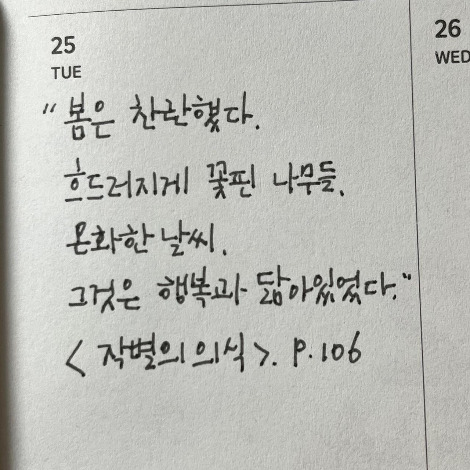 25
TUE
26
WED
"봄은 찬란했다.
흐드러지게 꽃핀 나무들.
온화한 날씨.
그것은 행복과 닮아있었다."
<작별의 의식>. p.106